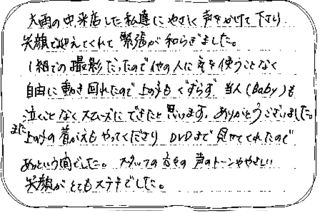 大雨の中来店した私達に やさしく声をかけて下さり
笑顔で迎えてくれて 緊張が和らぎました。
1組での撮影だったので他の人に気を使うことなく
自由に動き回れたので上の子も ぐずらず 当人(Baby)も
泣くことなくスムーズにできたと思います。ありがとうございました。
また上の子の着がえもやってくださり DVDまで見せてくれたので
あっという間でした。スタッフの方々の声のトーンややさしい
笑顔が とてもステキでした。